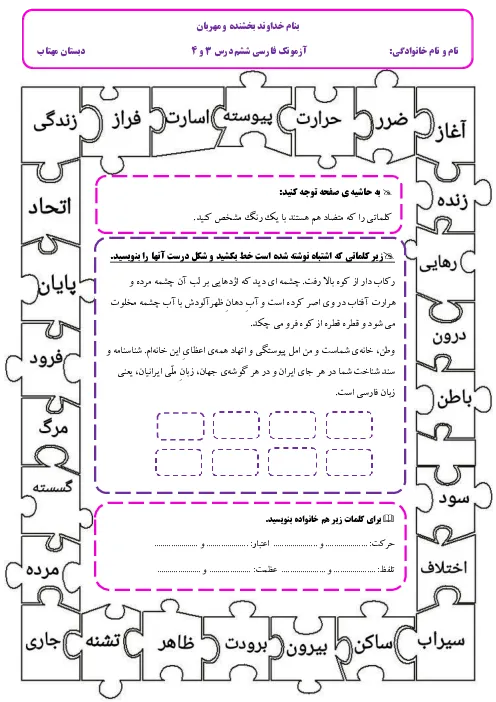 بنام خداوند بخشنده و مهربان
نام و نام خانوادگی: آزمونک فارسی ششم درس ۳ و ۴ دبستان مهتاب
آغاز ضرر حرارت پیوسته اسارت فراز زندگی
زنده
اتحاد
رهایی
پایان
درون
فرود
باطن
مرگ
سود
گسسته
اختلاف
مرده
سیراب ساکن بیرون برودت ظاهر تشنه جاری
به حاشیه ی صفحه توجه کنید:
کلماتی را که متضاد هم هستند با یک رنگ مشخص کنید.
زیر کلماتی که اشتباه نوشته شده است خط بکشید و شکل درست آنها را بنویسید.
رکاب دار از کوه بالا رفت. چشمه ای دید که اژدهایی بر لب آن چشمه مرده و
هرارت آفتاب در وی اصر کرده است و آب دهانِ ظهرآلودش با آب چشمه مخلوت
می شود و قطره قطره از کوه فرو می چکد.
وطن، خانه‌ی شماست و من امل پیوستگی و اتهاد همه‌ی اعظایِ این خانه‌ام. شناسنامه و
سند شناخت شما در هر جای ایران و در هر گوشه‌ی جهان، زبانِ ملّی ایرانیان، یعنی
زبان فارسی است.
برای کلمات زیر هم خانواده بنویسید.
حرکت: ................ و ................ اعتبار: ................ و ................
تلفظ: ................ و ................ عظمت: ................ و ................